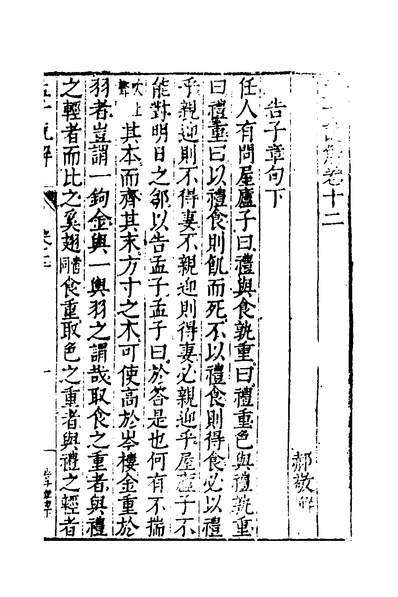 解卷十二
郝敬解
告子章句下
任人有問屋廬子曰禮與食孰重曰禮重色與禮孰重
曰禮重曰以禮食則飢而死不以禮食則得食必以禮
乎親迎則不得妻不親迎則得妻必親迎乎屋廬子不
能對明日之鄒以告孟子孟子曰於答是也何有不揣
吹上聲其本而齊其末方寸之木可使高於岑樓金重於
羽者豈謂一鉤金與一輿羽之謂哉取食之重者與禮
之輕者而比之奚翅啻同食重取色之重者與禮之輕者